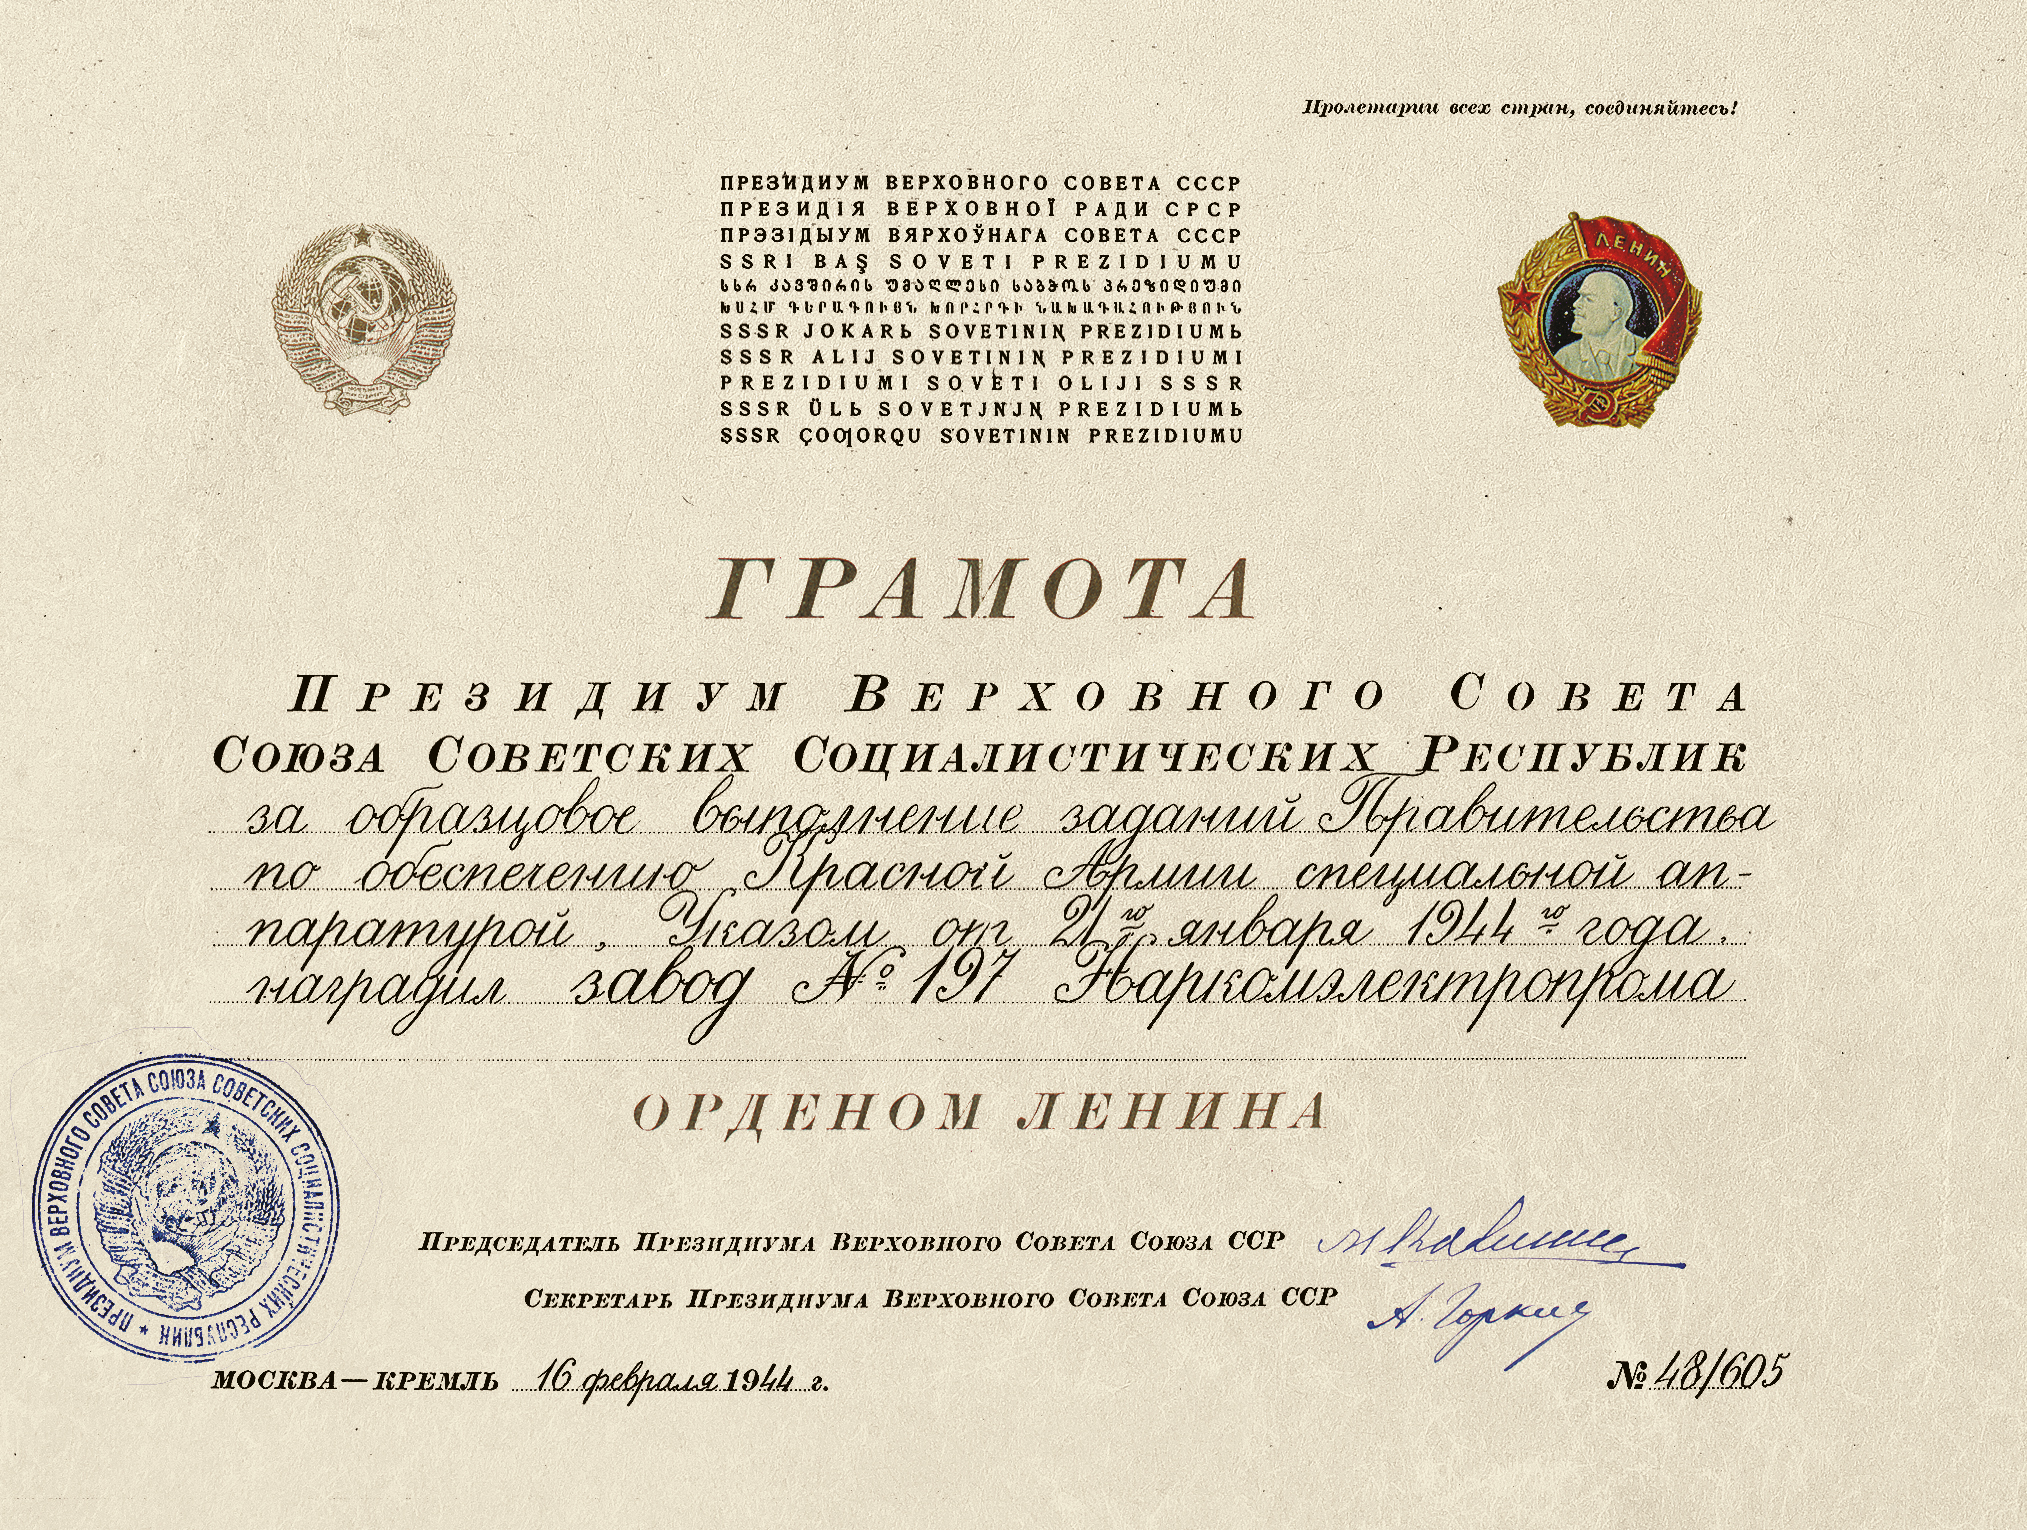 Пролетарии всех стран, соединяйтесь!
ПРЕЗИДИУМ ВЕРХОВНОГО СОВЕТА СССР
ПРЕЗИДІЯ ВЕРХОВНОЇ РАДИ СРСР
ПРЭЗІДЫУМ ВЯРХОЎНАГА СОВЕТА СССР
SSRI BAŞ SOVETI PREZIDIUMU
სსრ კავშირის უმაღლესი საბჭოს პრეზიდიუმი
ԽՍՀՄ ԳԵՐԱԳՈՒՅՆ ԽՈՐՀՐԴԻ ՆԱԽԱԳԱՀՈՒԹՅՈՒՆ
SSSR JOKARЬ SOVETINIⱨ PREZIDIUMЬ
SSSR ALIJ SOVETININ̡ PREZIDIUMI
PREZIDIUMI SOVETI OLIJI SSSR
SSSR ÜLЬ SOVETJNJN̡ PREZIDIUMЬ
SSSR ÇOƢORQU SOVETININ PREZIDIUMU
ЛЕНИН
ГРАМОТА
ПРЕЗИДИУМ ВЕРХОВНОГО СОВЕТА
СОЮЗА СОВЕТСКИХ СОЦИАЛИСТИЧЕСКИХ РЕСПУБЛИК
за образцовое выполнение заданий Правительства
по обеспечению Красной Армии специальной ап-
паратурой, Указом от 21го января 1944го года.
наградил завод № 197 Наркомэлектропрома
ОРДЕНОМ ЛЕНИНА
ПРЕЗИДИУМ ВЕРХОВНОГО СОВЕТА СОЮЗА СОВЕТСКИХ СОЦИАЛИСТИЧЕСКИХ РЕСПУБЛИК ★
ПРЕДСЕДАТЕЛЬ ПРЕЗИДИУМА ВЕРХОВНОГО СОВЕТА СОЮЗА ССР М Калинин
СЕКРЕТАРЬ ПРЕЗИДИУМА ВЕРХОВНОГО СОВЕТА СОЮЗА ССР А. Горкин
МОСКВА—КРЕМЛЬ 16 февраля 1944 г.
№ 48/605